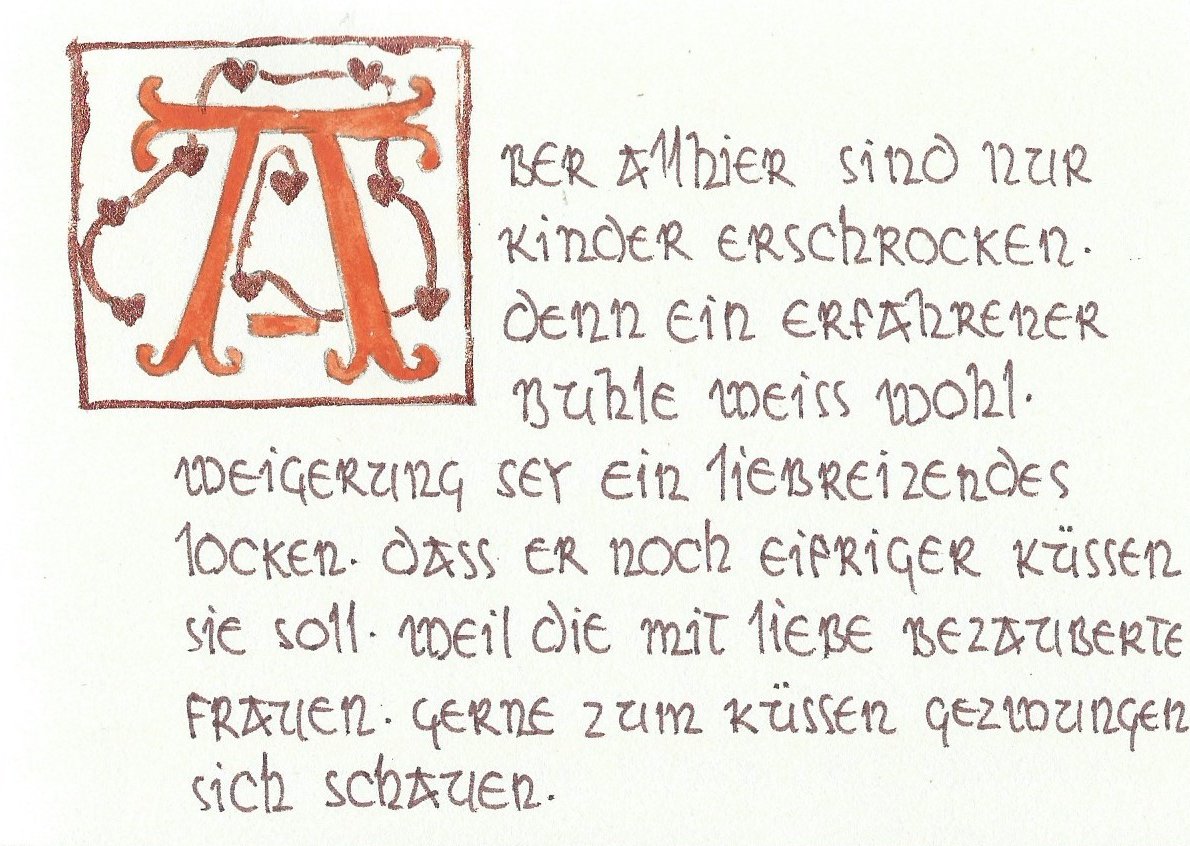 ABER ALLHIER SIND NUR
KINDER ERSCHROCKEN.
DENN EIN ERFAHRENER
BUHLE WEISS WOHL.
WEIGERUNG SEY EIN LIEBREIZENDES
LOCKEN. DASS ER NOCH EIFRIGER KÜSSEN
SIE SOLL. WEIL DIE MIT LIEBE BEZAUBERTE
FRAUEN. GERNE ZUM KÜSSEN GEZWUNGEN
SICH SCHAUEN.